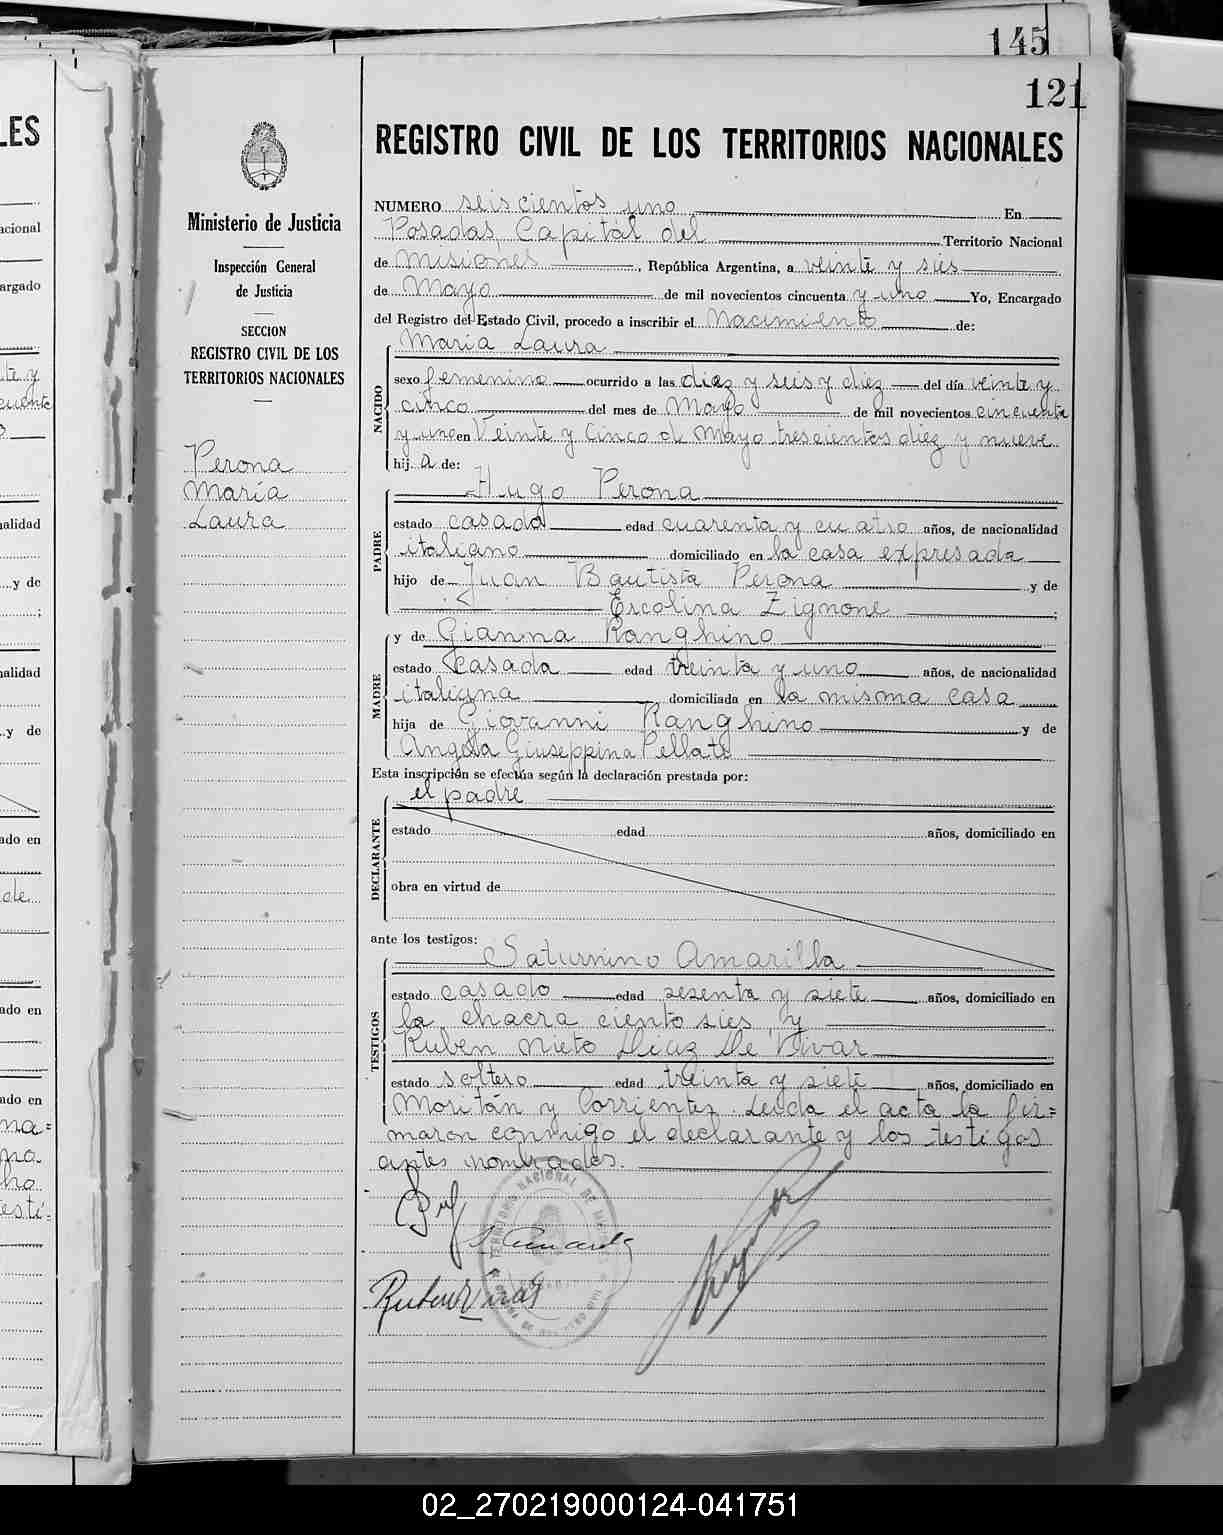 145
121
LES
REGISTRO CIVIL DE LOS TERRITORIOS NACIONALES
Ministerio de Justicia
Inspección General
de Justicia
SECCION
REGISTRO CIVIL DE LOS
TERRITORIOS NACIONALES
Perona
María
Laura
NUMERO seiscientos uno En
Posadas, Capital del Territorio Nacional
de Misiones, República Argentina, a veinte y sies
de Mayo de mil novecientos cincuenta y uno Yo, Encargado
del Registro del Estado Civil, procedo a inscribir el Nacimiento de:
NACIDO
María Laura
sexo femenino ocurrido a las diez y seis y diez del día veinte y
cinco del mes de Mayo de mil novecientos cincuenta
y uno en Veinte y Cinco de Mayo trescientos diez y nueve
hij a de:
PADRE
Hugo Perona
estado casado edad cuarenta y cuatro años, de nacionalidad
italiano domiciliado en la casa expresada
hijo de Juan Bautista Perona y de
Ercolina Zignone;
MADRE
y de Gianna Ranghino
estado casada edad treinta y uno años, de nacionalidad
italiana domiciliada en la misma casa
hija de Giovanni Ranghino y de
Angela Giuseppina Pellati
Esta inscripción se efectúa según la declaración prestada por:
DECLARANTE
el padre
estado edad años, domiciliado en
obra en virtud de
ante los testigos:
TESTIGOS
Saturnino Amarilla
estado casado edad sesenta y siete años, domiciliado en
la chacra ciento sies, y
Ruben Nieto Diaz De Vivar
estado soltero edad treinta y siete años, domiciliado en
Moritán y Corrientes. Leida el acta la fir=
maron conmigo el declarante y los testigos
antes nombrados.
02_270219000124-041751